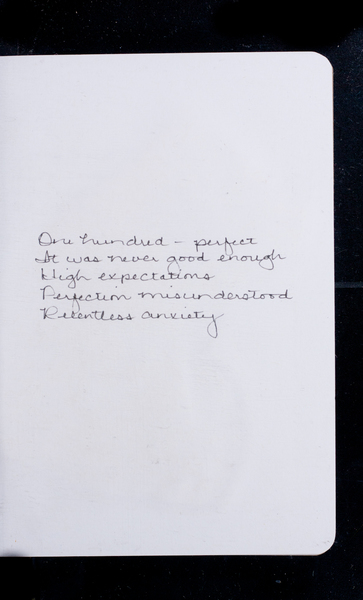 One hundred - perfect
It was never good enough
High expectations
Perfection misunderstood
Relentless anxiety